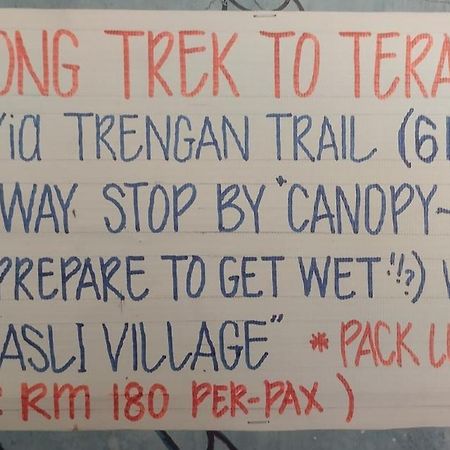 ONG TREK TO TERA
via TRENGAN TRAIL (6
WAY STOP BY "CANOPY-
PREPARE TO GET WET!!?)
ASLI VILLAGE" * PACK LU
: RM 180 PER-PAX )